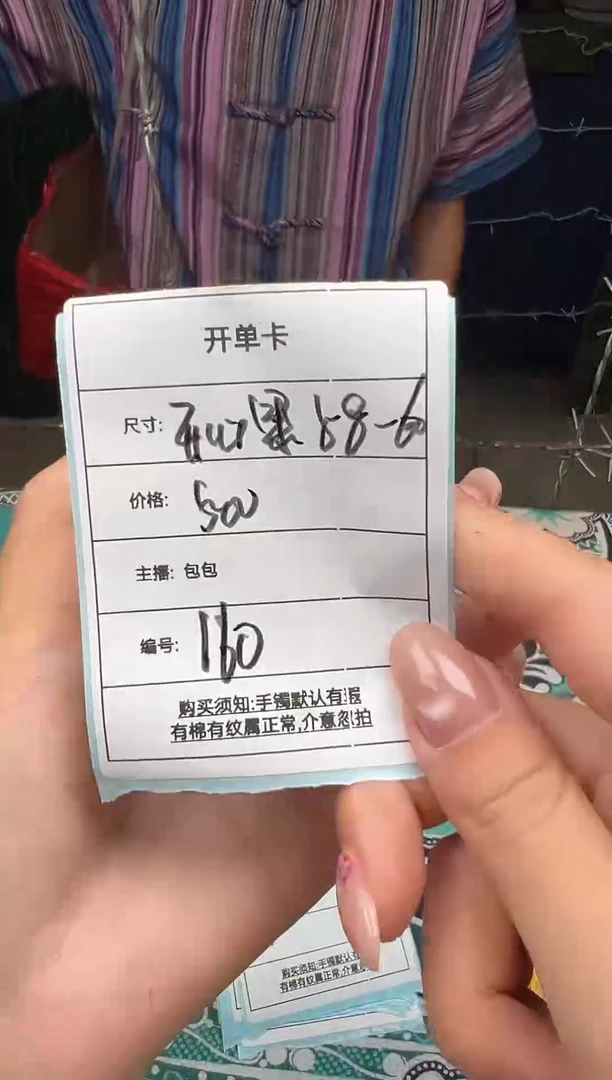 开单卡
尺寸: 58-60
价格: 500
主播: 包包
编号: 160
购买须知:手镯默认有瑕
有棉有纹属正常,介意忽拍
购买须知:手镯默认有
有棉有纹属正常,介意